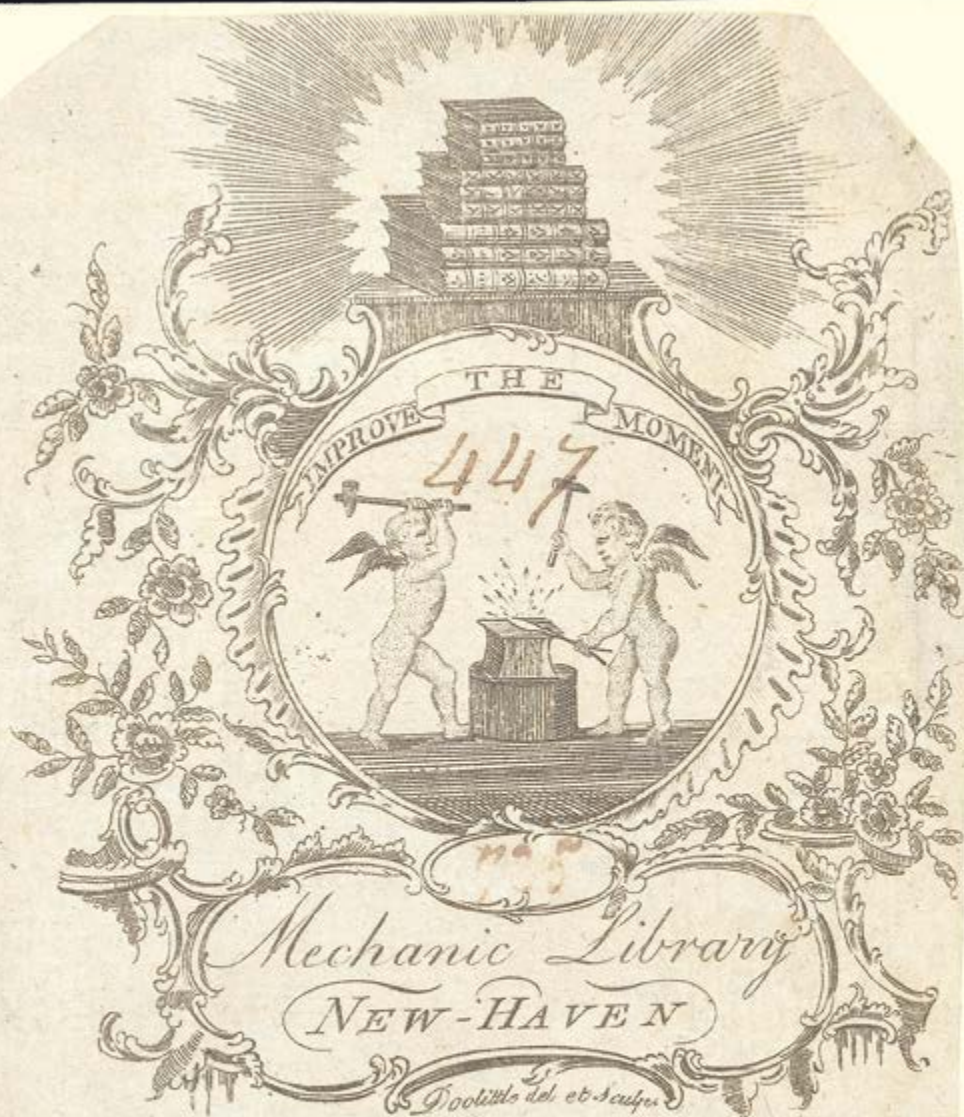 IMPROVE THE MOMENT
447
Mechanic Library
NEW-HAVEN
Doolittle del et sculp